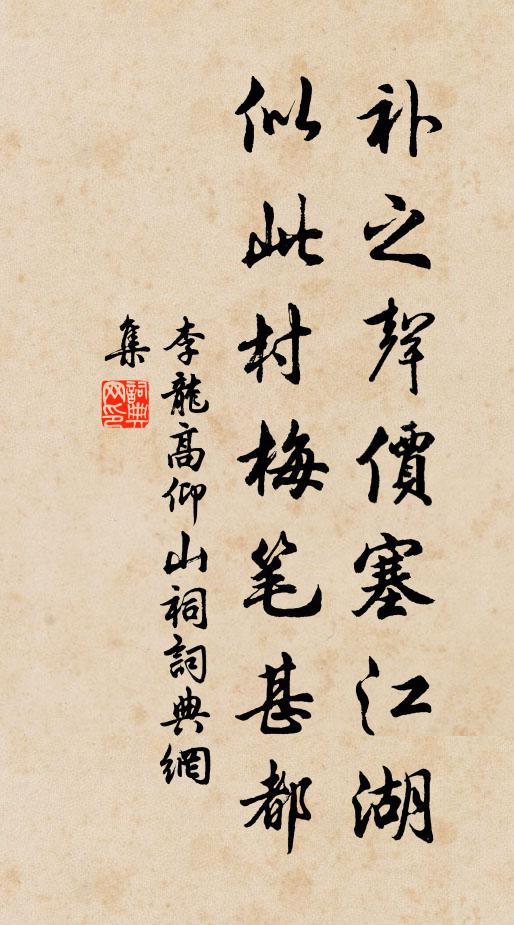 补之聲價塞江湖
似此村梅笔甚都
李龍高仰山祠詞典網
集
詞典網印